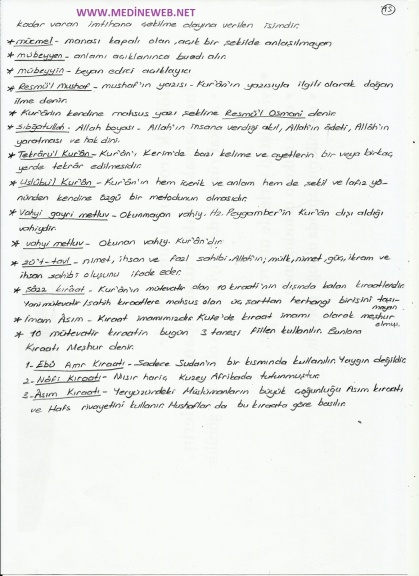 www.MEDINEWEB.NET
15
kadar varan imtihana çekilme olayına verilen isimdir.
* mücmel - manası kapalı olan, açık bir şekilde anlaşılmayan
* mübeyyen - anlamı açıklanınca bu adı alır.
* mübeyyin - beyan edici açıklayıcı
* Resmü'l Mushaf - mushaf'ın yazısı - Kur'ân'ın yazısıyla ilgili olarak doğan
ilme denir.
* Kur'ân'ın kendine mahsus yazı şekline Resmü'l Osmanî denir.
* Sıbğatullah - Allah boyası - Allah'ın insana verdiği akıl, Allah'ın âdeti, Allâh'ın
yaratması ve hak dini.
* Tekrâru'l Kur'ân - Kur'ân'ı Kerim'de bazı kelime ve ayetlerin bir veya birkaç
yerde tekrâr edilmesidir.
* Üslûbu'l Kur'ân - Kur'ân'ın hem içerik ve anlam hem de şekil ve lafız yö-
nünden kendine özgü bir metodunun olmasıdır.
* Vahyi gayri metluv - Okunmayan vahiy. Hz. Peygamber'in Kur'ân dışı aldığı
vahiydir.
* vahyi metluv - Okunan vahiy. Kur'ân'dır.
* zü't-tavl - nimet, ihsan ve fazl sahibi. Allah'ın; mülk, nimet, güç, ikram ve
ihsan sahibi oluşunu ifade eder.
* Şâzz kırâat - Kur'ân'ın mütevatir olan 10 kıraati'nin dışında kalan kıraatlerdir.
Yani mütevatir/sahih kıraatlere mahsus olan üç şarttan herhangi birisini taşı-
mayan.
* İmam Âsım - Kıraat imamımızdır. Kufe'de kıraat imamı olarak meşhur
olmuş.
* 10 mütevatir kıraatin bugün 3 tanesi fiilen kullanılır. Bunlara
Kıraati Meşhur denir.
1- Ebû Amr Kıraati - Sadece Sudan'ın bir kısmında kullanılır. Yaygın değildir.
2- Nâfi Kıraati - Mısır hariç Kuzey Afrikada tutunmuştur.
3- Âsım Kıraati - Yeryüzündeki Müslümanların büyük çoğunluğu Asım kıraatı
ve Hafs rivayetini kullanır. Mushaflar da bu kıraata göre basılır.